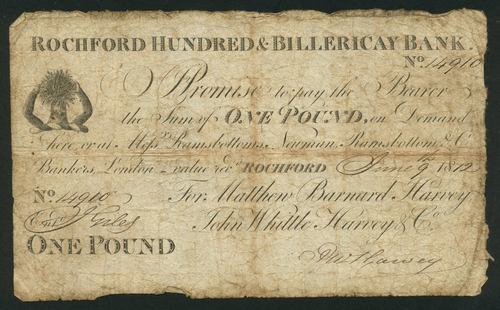 ROCHFORD HUNDRED & BILLERICAY BANK.
No. 14910
I Promise to pay the Bearer
the Sum of ONE POUND, on Demand
here, or at Messrs. Ramsbottoms, Newman, Ramsbottom & Co
Bankers, London value recd ROCHFORD June 9 1812
No. 14910
For Matthew Barnard Harvey
Entd J Giles
John Whittle Harvey & Co
ONE POUND
MB Harvey